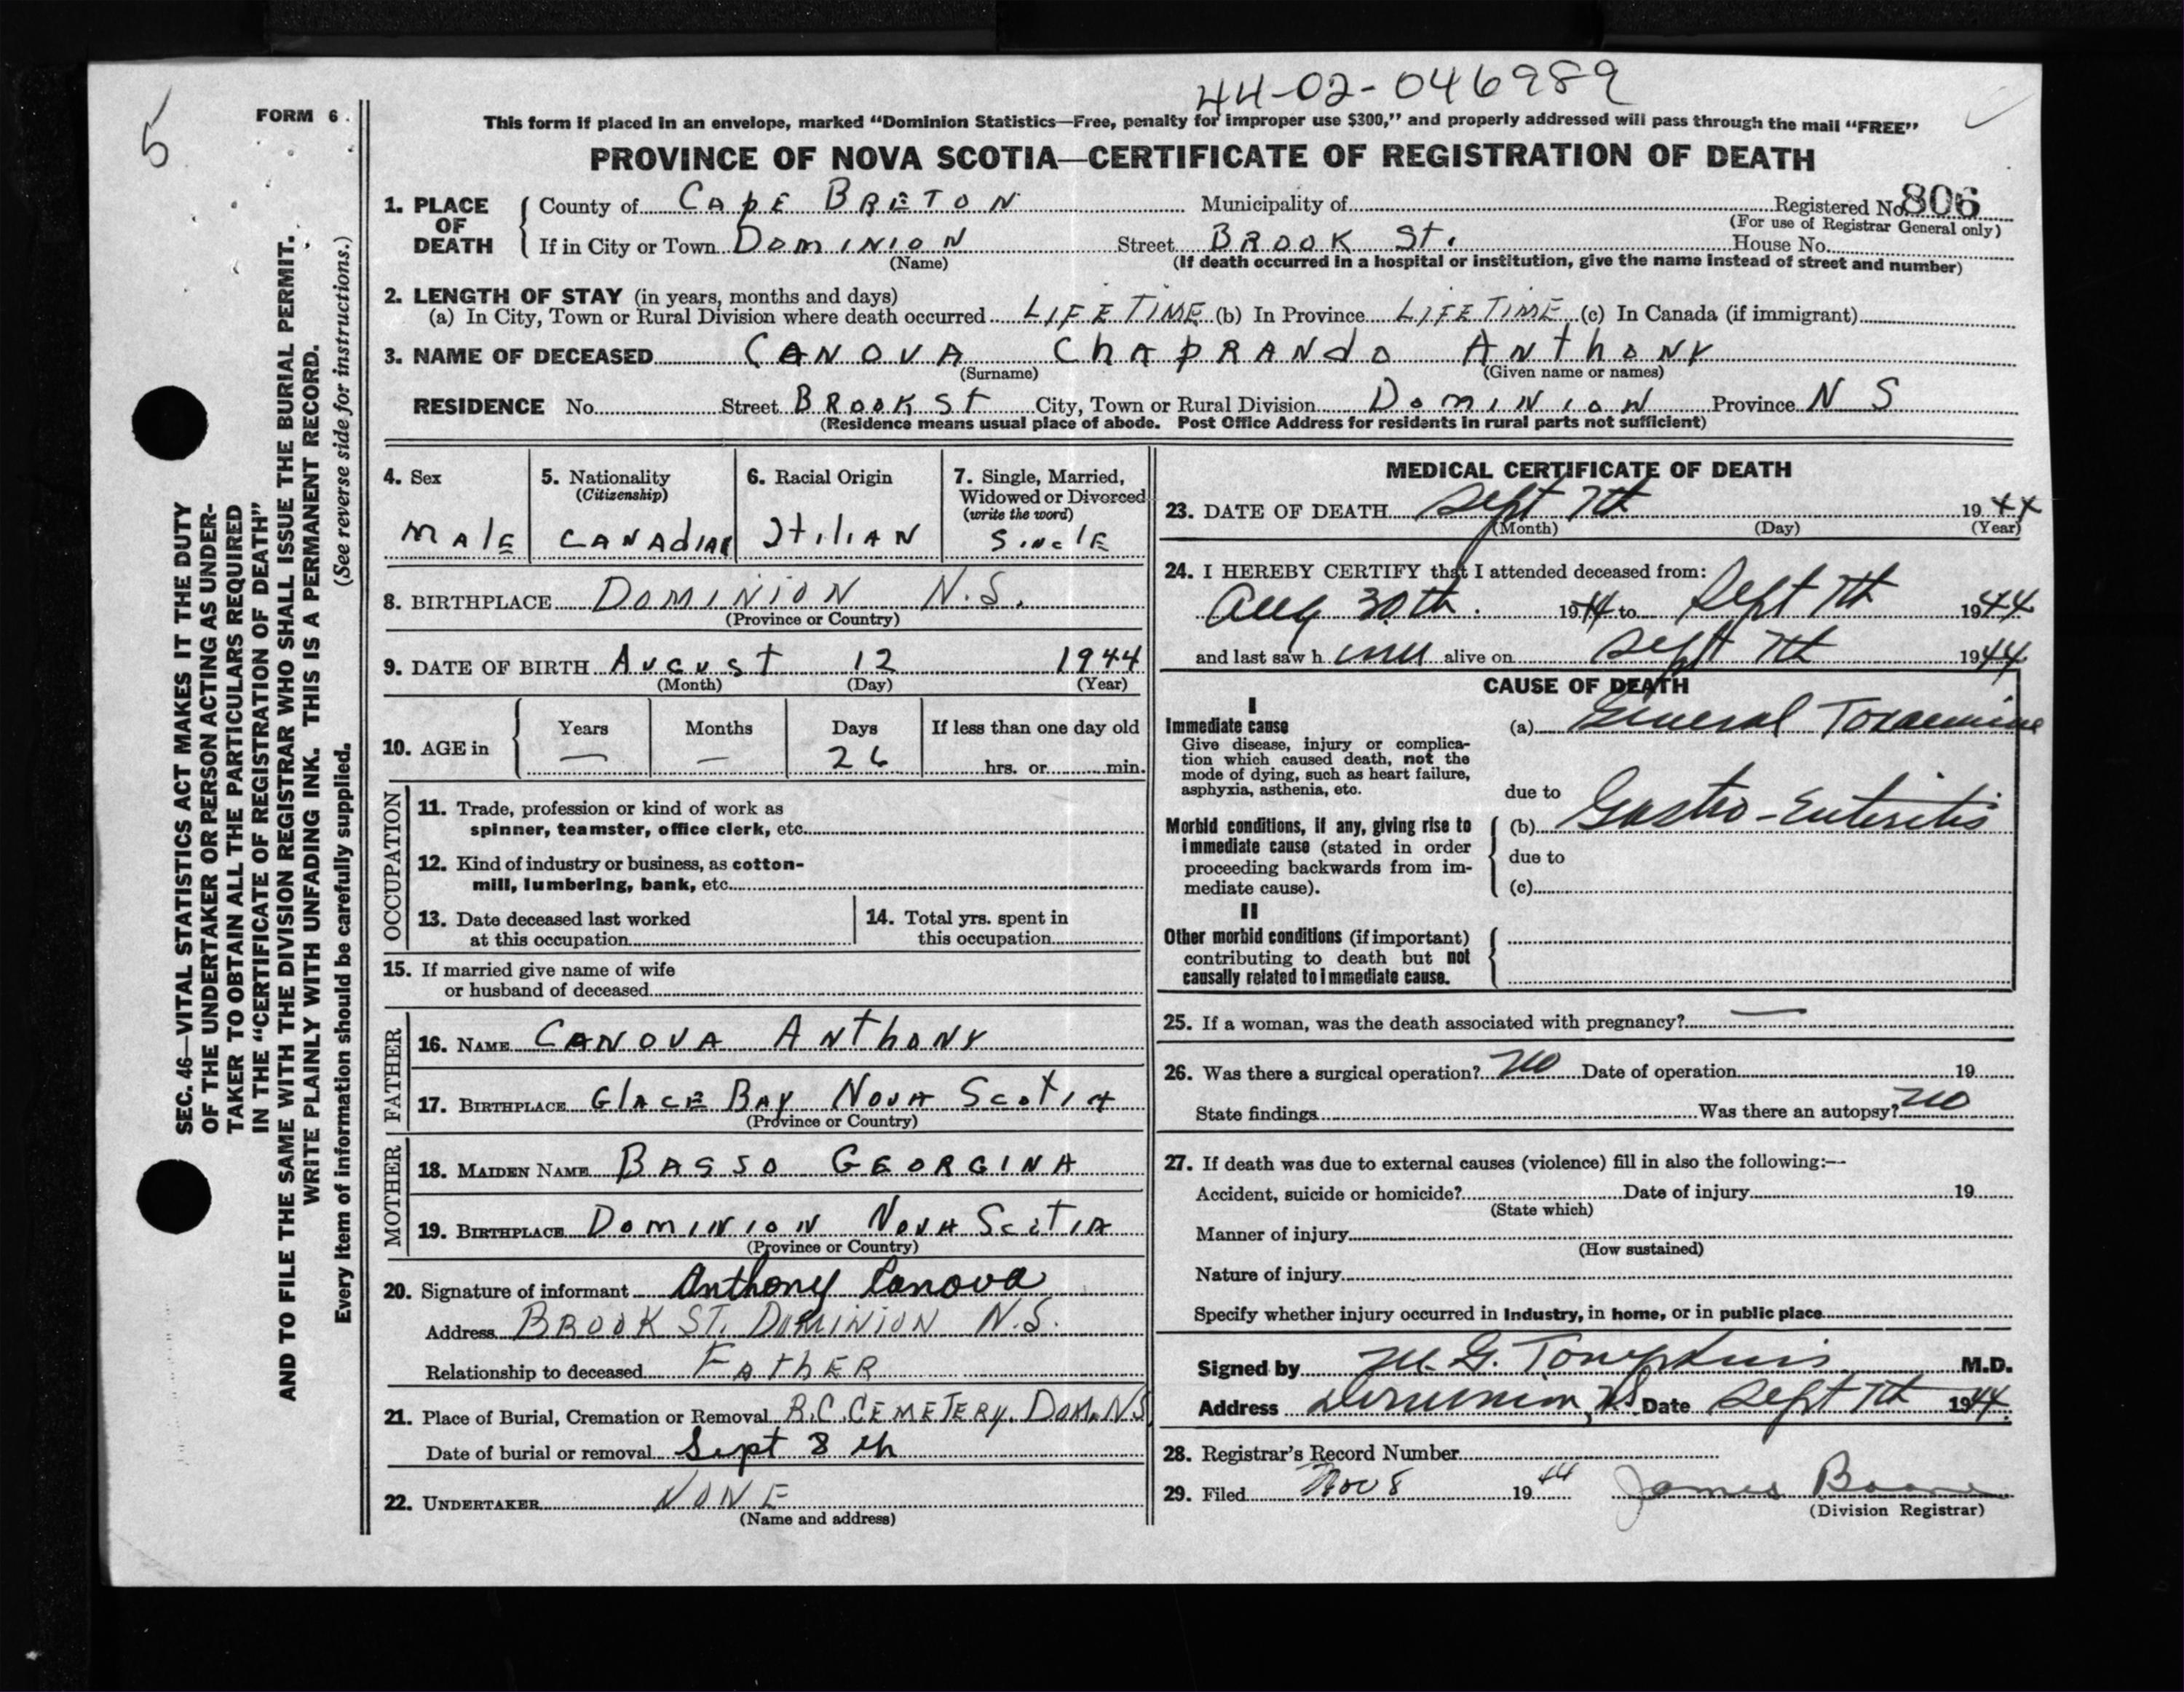 44-02-046989
5
FORM 6.
This form if placed in an envelope, marked "Dominion Statistics—Free, penalty for improper use $300," and properly addressed will pass through the mail "FREE"
PROVINCE OF NOVA SCOTIA—CERTIFICATE OF REGISTRATION OF DEATH
1. PLACE OF DEATH County of CAPE BRETON Municipality of Registered No. 806
(For use of Registrar General only)
If in City or Town DOMINION Street BROOK St. House No.
(Name) (If death occurred in a hospital or institution, give the name instead of street and number)
2. LENGTH OF STAY (in years, months and days)
(a) In City, Town or Rural Division where death occurred LIFE TIME (b) In Province LIFE TIME (c) In Canada (if immigrant)
3. NAME OF DECEASED CANOVA ChAPRANdO ANthONY
(Surname) (Given name or names)
RESIDENCE No. Street BROOK St City, Town or Rural Division DOMINION Province N S
(Residence means usual place of abode. Post Office Address for residents in rural parts not sufficient)
4. Sex
MAlE
5. Nationality
(Citizenship)
CANAdIAN
6. Racial Origin
ItiliAN
7. Single, Married,
Widowed or Divorced
(write the word)
SinclE
8. BIRTHPLACE DOMINION N.S.
(Province or Country)
9. DATE OF BIRTH AUGUST 12 1944
(Month) (Day) (Year)
10. AGE in Years Months Days If less than one day old
— — 26 hrs. or min.
OCCUPATION
11. Trade, profession or kind of work as
spinner, teamster, office clerk, etc.
12. Kind of industry or business, as cotton-
mill, lumbering, bank, etc.
13. Date deceased last worked
at this occupation
14. Total yrs. spent in
this occupation
15. If married give name of wife
or husband of deceased
FATHER
16. NAME CANOVA ANthONY
17. BIRTHPLACE GlACE BAY NOVA ScotiA
(Province or Country)
MOTHER
18. MAIDEN NAME BASSO GEORGINA
19. BIRTHPLACE DOMINION NOVA ScotiA
(Province or Country)
20. Signature of informant Anthony Canova
Address BROOK ST. DOMINION N.S.
Relationship to deceased FAthER
21. Place of Burial, Cremation or Removal R.C. CEMETERY. DOM. NS
Date of burial or removal Sept 8 th
22. UNDERTAKER NONE
(Name and address)
MEDICAL CERTIFICATE OF DEATH
23. DATE OF DEATH Sept 7th 1944
(Month) (Day) (Year)
24. I HEREBY CERTIFY that I attended deceased from:
Aug 30th. 1944 to Sept 7th 1944
and last saw h im alive on Sept 7th 1944
CAUSE OF DEATH
I
Immediate cause
Give disease, injury or complica-
tion which caused death, not the
mode of dying, such as heart failure,
asphyxia, asthenia, etc.
(a) General Toxaemia
due to
Morbid conditions, if any, giving rise to
immediate cause (stated in order
proceeding backwards from im-
mediate cause).
(b) Gastro-Enteritis
due to
(c)
II
Other morbid conditions (if important)
contributing to death but not
causally related to immediate cause.
25. If a woman, was the death associated with pregnancy? —
26. Was there a surgical operation? no Date of operation 19
State findings Was there an autopsy? no
27. If death was due to external causes (violence) fill in also the following:—
Accident, suicide or homicide? Date of injury 19
(State which)
Manner of injury
(How sustained)
Nature of injury
Specify whether injury occurred in Industry, in home, or in public place
Signed by M. G. Tompkins M.D.
Address Dominion, NS. Date Sept 7th 1944.
28. Registrar's Record Number
29. Filed Nov 8 1944 James Boone
(Division Registrar)
SEC. 46—VITAL STATISTICS ACT MAKES IT THE DUTY
OF THE UNDERTAKER OR PERSON ACTING AS UNDER-
TAKER TO OBTAIN ALL THE PARTICULARS REQUIRED
IN THE "CERTIFICATE OF REGISTRATION OF DEATH"
AND TO FILE THE SAME WITH THE DIVISION REGISTRAR WHO SHALL ISSUE THE BURIAL PERMIT.
WRITE PLAINLY WITH UNFADING INK. THIS IS A PERMANENT RECORD.
Every item of information should be carefully supplied. (See reverse side for instructions.)